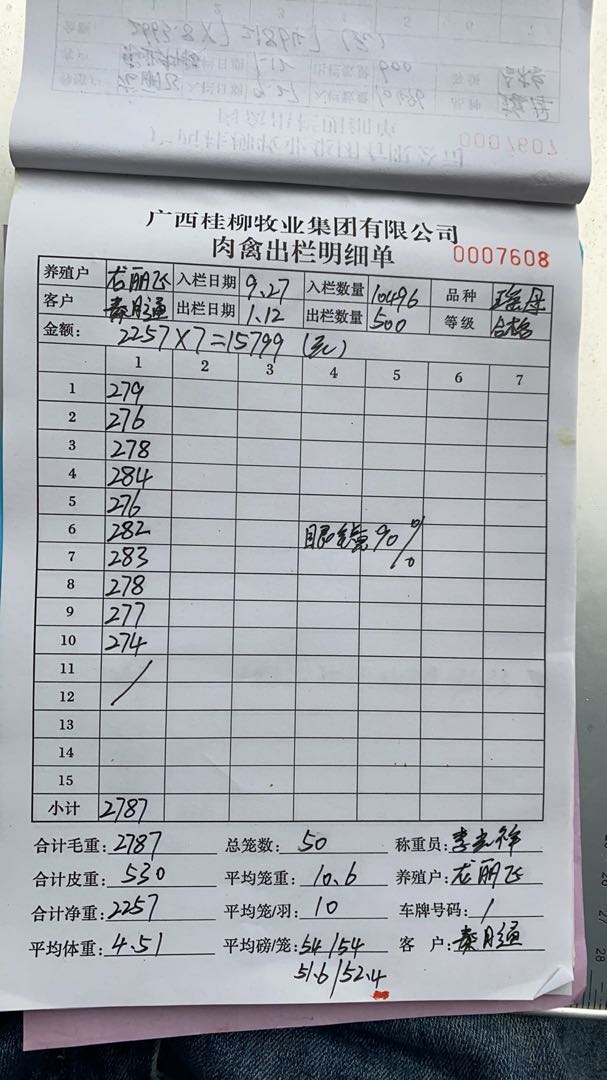 广西桂柳牧业集团有限公司
肉禽出栏明细单 0007608
养殖户 龙丽飞 入栏日期 9.27 入栏数量 10496 品种
客户 秦月通 出栏日期 1.12 出栏数量 500 等级 合格
金额: 2257×7=15799 (元)
1 2 3 4 5 6 7
1 279
2 276
3 278
4 284
5 276
6 282 90%
7 283
8 278
9 277
10 274
11
12
13
14
15
小计 2787
合计毛重: 2787 总笼数: 50 称重员:
合计皮重: 530 平均笼重: 10.6 养殖户: 龙丽飞
合计净重: 2257 平均笼/羽: 10 车牌号码: /
平均体重: 4.51 平均磅/笼: 54/54 客户: 秦月通
51.6/52.4